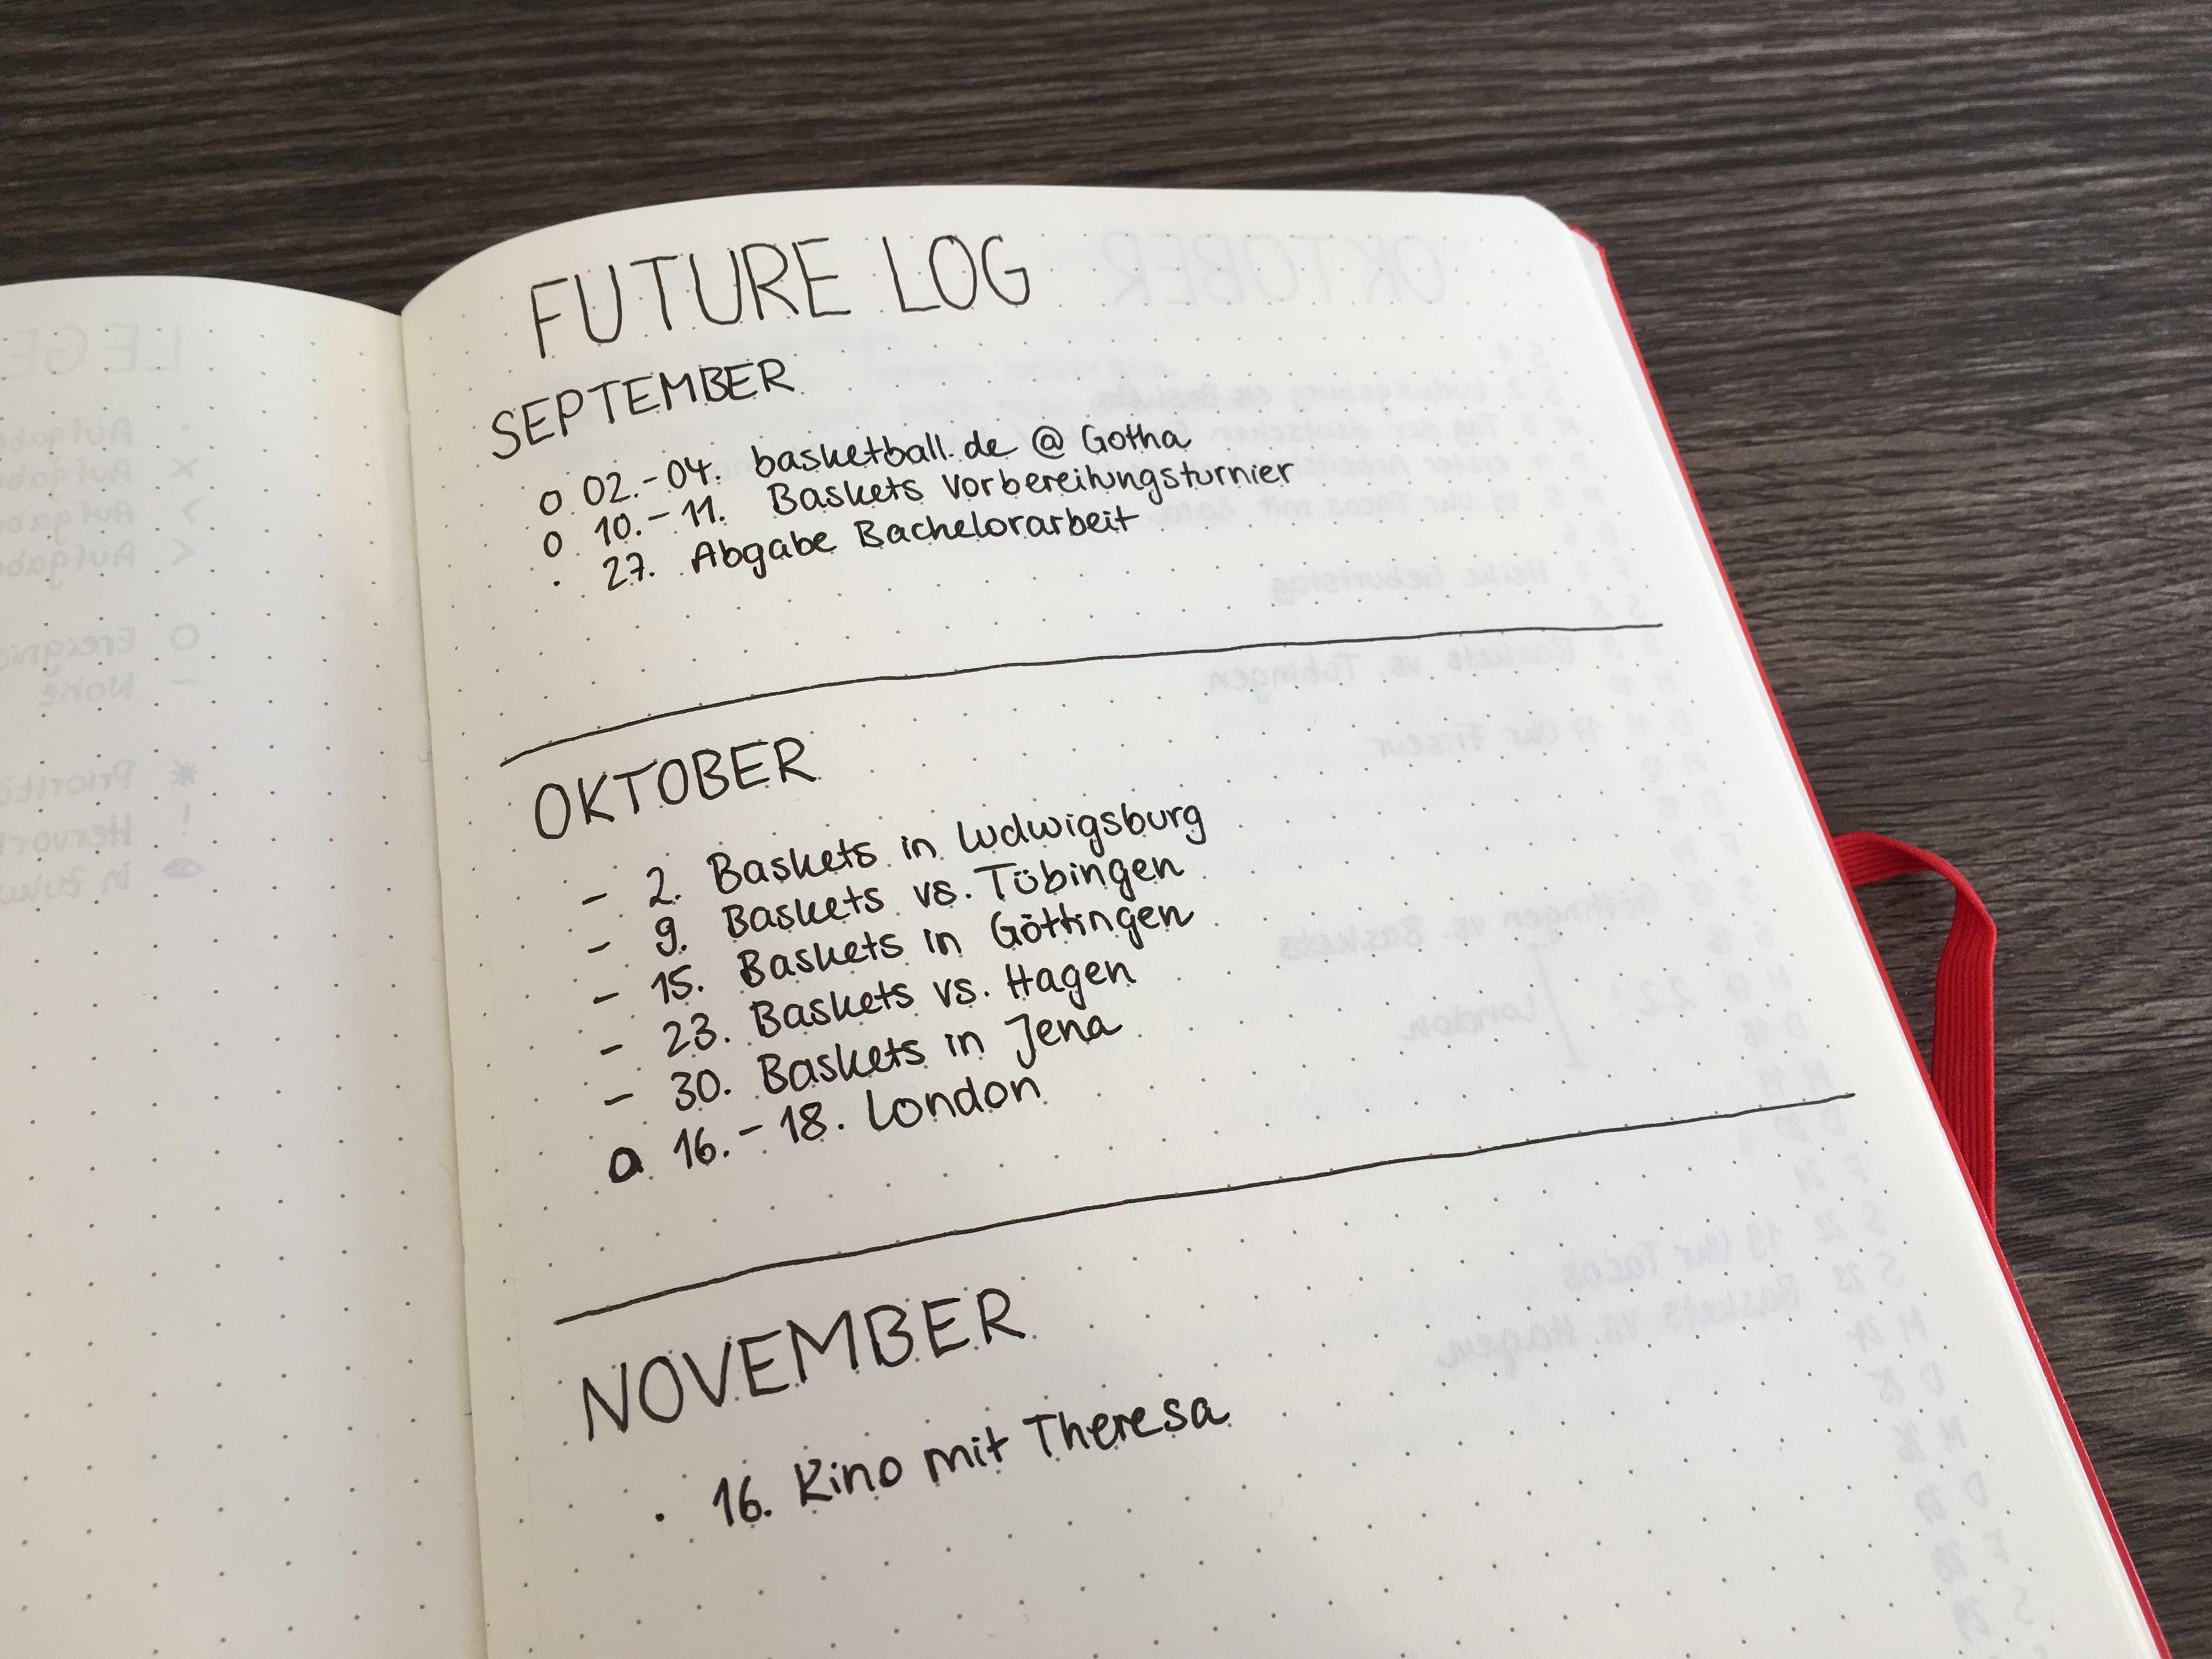 FUTURE LOG
SEPTEMBER
o 02.-04. basketball.de @ Gotha
o 10.-11. Baskets Vorbereitungsturnier
· 27. Abgabe Bachelorarbeit
OKTOBER
- 2. Baskets in Ludwigsburg
- 9. Baskets vs. Tübingen
- 15. Baskets in Göttingen
- 23. Baskets vs. Hagen
- 30. Baskets in Jena
o 16.-18. London
NOVEMBER
· 16. Kino mit Theresa